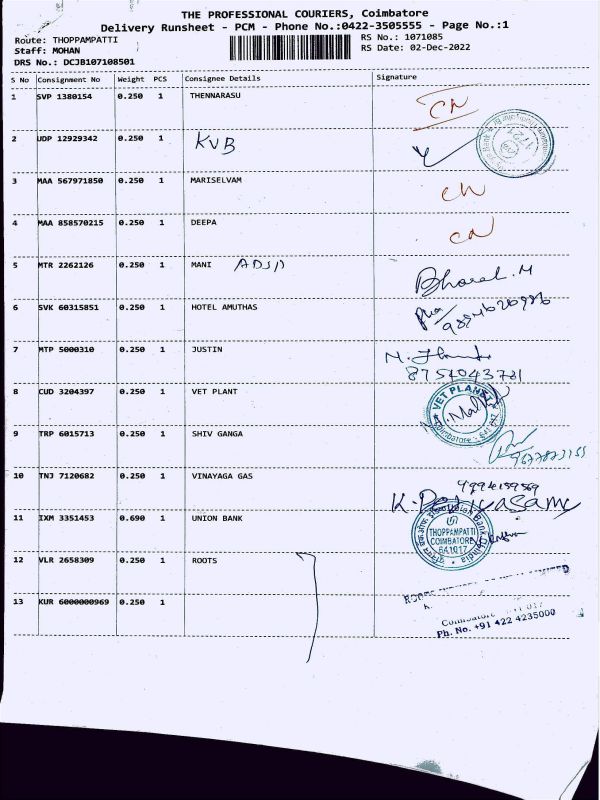 THE PROFESSIONAL COURIERS, Coimbatore
Delivery Runsheet - PCM - Phone No.:0422-3505555 - Page No.:1
Route: THOPPAMPATTI RS No.: 1071085
Staff: MOHAN RS Date: 02-Dec-2022
DRS No.: DCJB107108501
S No Consignment No Weight PCS Consignee Details Signature
1 SVP 1380154 0.250 1 THENNARASU CN
2 UDP 12929342 0.250 1 KVB
3 MAA 567971850 0.250 1 MARISELVAM CN
4 MAA 858570215 0.250 1 DEEPA CN
5 MTR 2262126 0.250 1 MANI Bharat. M
6 SVK 60315851 0.250 1 HOTEL AMUTHAS
7 MTP 5000310 0.250 1 JUSTIN
8 CUD 3204397 0.250 1 VET PLANT VET PLANET Coimbatore
9 TRP 6015713 0.250 1 SHIV GANGA
10 TNJ 7120682 0.250 1 VINAYAGA GAS
K. Periyasamy
11 IXM 3351453 0.690 1 UNION BANK Union Bank of India THOPPAMPATTI
COIMBATORE
641017
12 VLR 2658309 0.250 1 ROOTS
13 KUR 6000000969 0.250 1
Coimbatore
Ph. No. +91 422 4235000